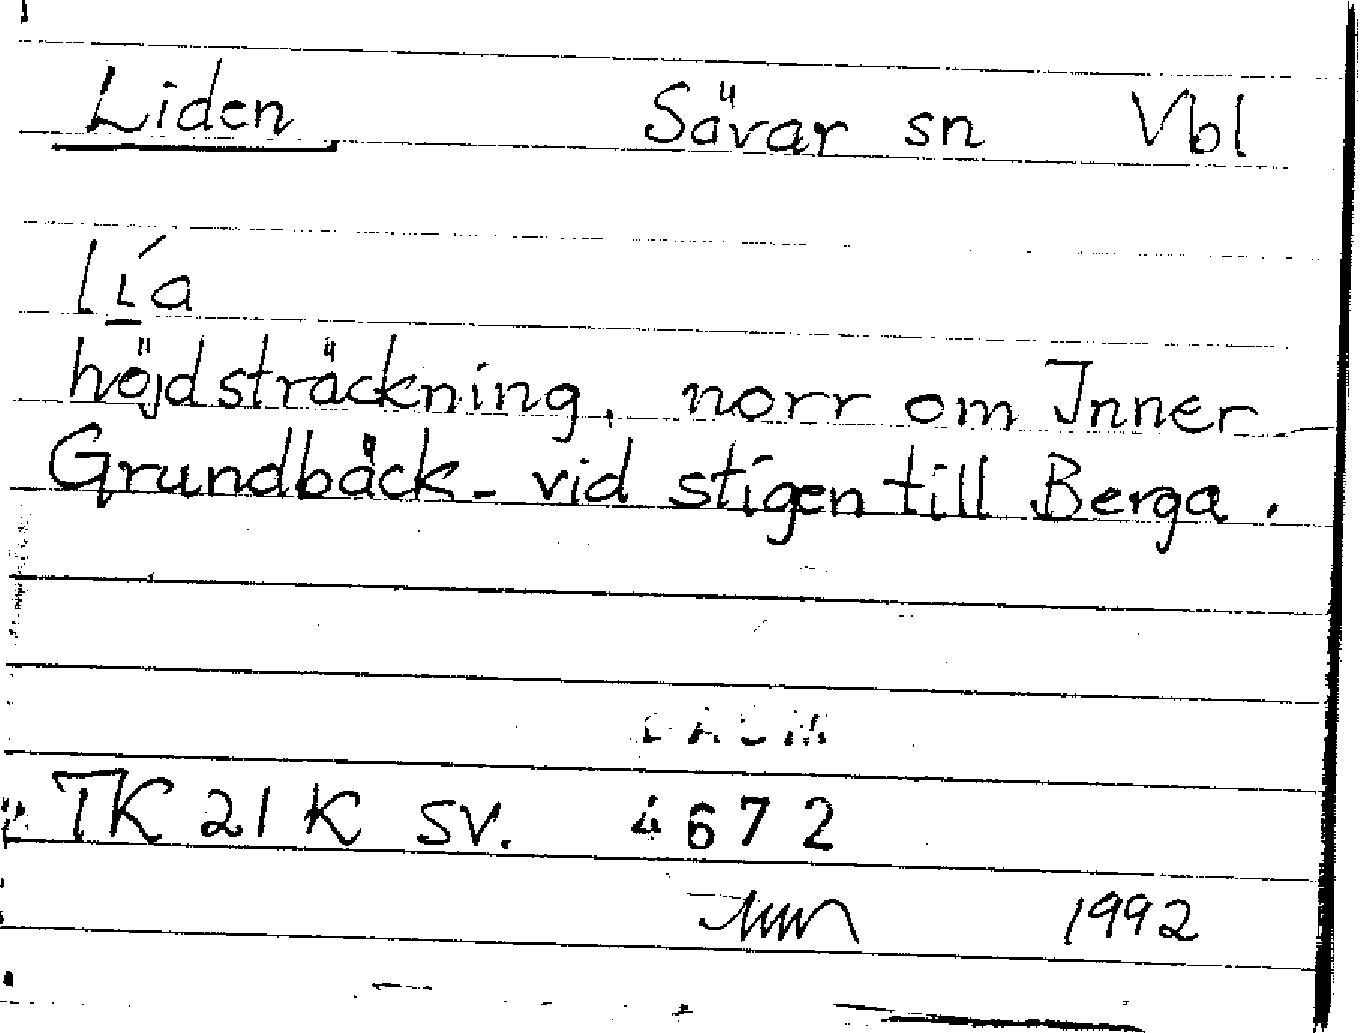 Liden Sävar sn Vbl
lía
höjdsträckning, norr om Inner
Grundbäck - vid stigen till Berga.
TK 21 K SV. 4672
1992